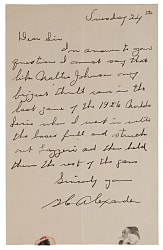 Tuesday 24th
Dear Sir
In answer to your
question I cannot say that
like Walter Johnson my
biggest thrill was in the
last game of the 1926 Worlds
Series when I went in with
the bases full and struck
out Lazzeri and then held
them the rest of the game
Sincerely yours
G C Alexander